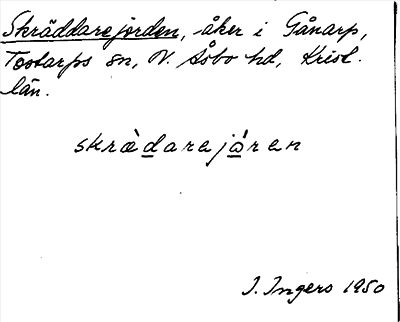 Skräddarejorden, åker i Gånarp,
Tostarps sn, N. Åsbo hd, Krist.
län.
skrä̀darejǻren
I. Ingers 1950